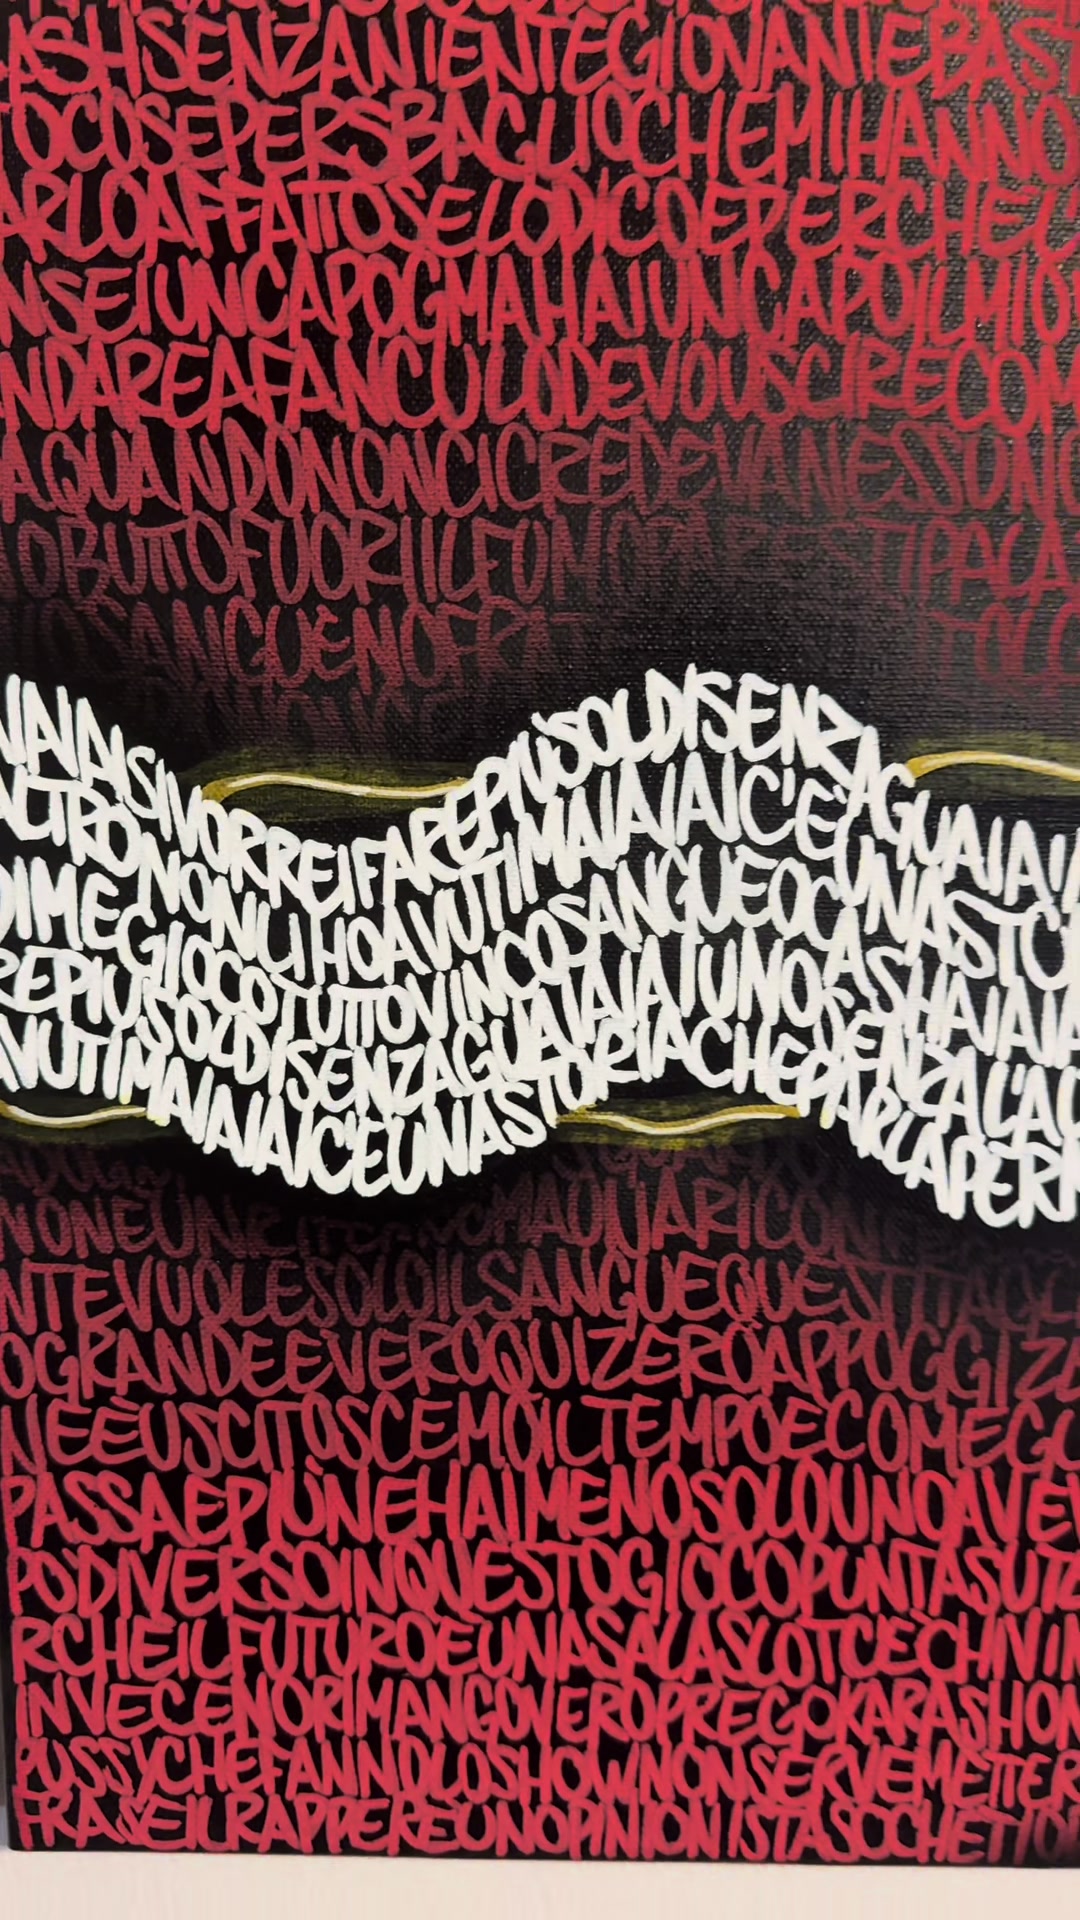 ASHSENZANIENTEGIOVANTIEBAST
TOCOSEPERSBAGLIOCHEMIHANNO
ARLOAFFATTOSELODICOEPERCHÉC
NSEIUNCAPOGMAHAIUNCAPOILMIO
NDAREAFANCULODEVOUSCIRECOM
AQUANDONONCICREDEVANESSUNO
OBUTTOFUORIILFUMO
OSANGUENOFRAT
VAIAIAISIVORREIFAREPIÙSOLDISENZAGUAIAIA
ALTRONONLIHOAVUTIMAIAIAIAIC'ÈUNASTO
DIMEGIOCOTUTTOVINCOSANGUEOCASHAIAIA
REPIUSOLDISENZAGUAIAIAIUNOSENZAL'AL
AVUTIMAIAIAIAIC'ÈUNASTORIACHEPARLAPERM
NONÈUN
NTEVUOLESOLOILSANGUEQUESTITA
OGRANDEEVEROQUIZEROAPPOGGIZE
NEÈUSCITOSCEMOILTEMPOÈCOMEGO
PASSAEPIÙNEHAIMENOSOLOUNOAVEV
PODIVERSOINQUESTOGIOCOPUNTASUTE
RCHEILFUTUROÈUNASALASLOTCÈCHIVIN
INVECENORIMANGOVEROPREGOKARASHON
PUSSYCHEFANNOLOSHOWNONSERVEMETTER
FRASEILRAPPEREUNOPINIONISTASOCHETI